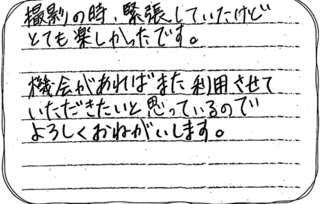 撮影の時、緊張していたけど
とても楽しかったです。
機会があればまた利用させて
いただきたいと思っているので
よろしくおねがいします。